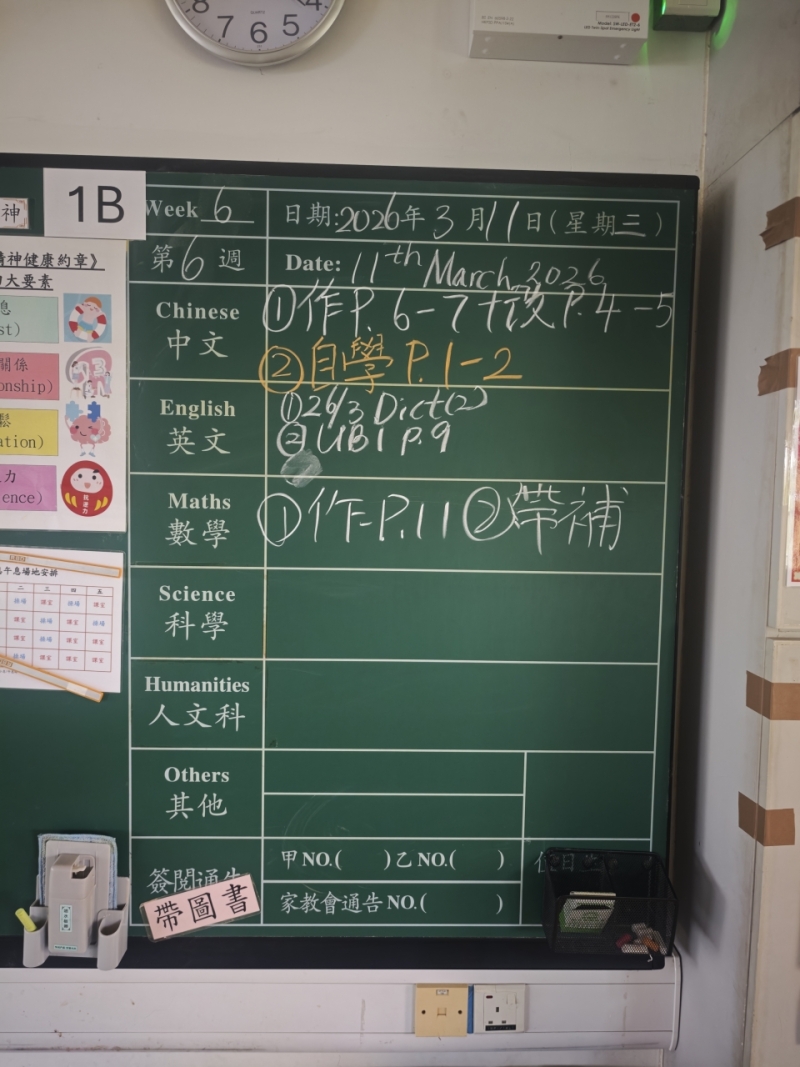 8 7 6 5 4
QUARTZ
神
1B
Week 6
日期:2026年3月11日(星期三)
第6週
Date: 11th March 2026
精神健康約章》
大要素
息
st)
關係
onship)
鬆
ation)
力
ience)
Chinese
中文
①作P.6-7 P.4-5
②自學P.1-2
English
英文
①26/3 Dict(2)
②UB1 P.9
Maths
數學
①作=P.11②帶補
午息場地安排
二 三 四 五
Science
科學
Humanities
人文科
Others
其他
簽閱通告
甲NO.( )乙NO.( )
家教會通告NO.( )
帶圖書